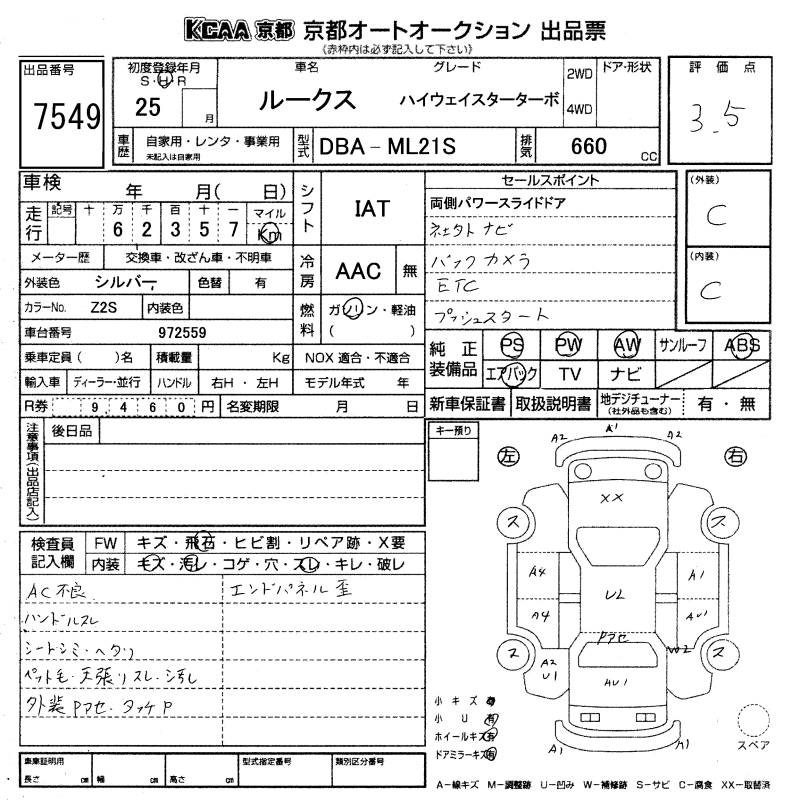 KCAA 京都 京都オートオークション 出品票
(赤枠内は必ず記入して下さい)
出品番号
7549
初度登録年月
S・H・R
25 月
車名 グレード
ルークス ハイウェイスターターボ
2WD
4WD
ドア・形状
評価点
3.5
車歴
自家用・レンタ・事業用
未記入は自家用
型式
DBA－ML21S
排気
660 CC
車検 年 月( 日)
走行
記号 十 万 千 百 十 一 マイル
6 2 3 5 7 Km
メーター歴 交換車・改ざん車・不明車
外装色 シルバー 色替 有
カラーNo. Z2S 内装色
車台番号 972559
乗車定員( )名 積載量 Kg
輸入車 ディーラー・並行 ハンドル 右H・左H
R券 9460円 名変期限 月 日
シフト
IAT
冷房
AAC 無
燃料
ガソリン・軽油
( )
NOX 適合・不適合
モデル年式 年
セールスポイント
両側パワースライドドア
ネェクト ナビ
バックカメラ
ETC
プッシュスタート
(外装)
C
(内装)
C
純正装備品
PS PW AW サンルーフ ABS
エアバック TV ナビ
新車保証書 取扱説明書 地デジチューナー
(社外品も含む)
有・無
注意事項(出品店記入)
後日品
キー預り
検査員記入欄
FW キズ・飛石・ヒビ割・リペア跡・X要
内装 キズ・汚レ・コゲ・穴・スレ・キレ・破レ
AC不良
エンドパネル歪
ハンドルスレ
シートシミ・ヘタリ
ペット毛・天張リスレ・汚レ
外装Pアセ・タッチP
左 右
A2 A1 A2
XX
ス ス
A4 A1
U2
A4 AU1
Pアセ
W2
ス ス
A2
U1
AU1
A1 A1
小キズ 有
小U 有
ホイールキズ 有
ドアミラーキズ 有
スペア
車庫証明用
長さ cm 幅 cm 高さ cm
型式指定番号 類別区分番号
A－線キズ M－調整跡 U－凹み W－補修跡 S－サビ C－腐食 XX－取替済